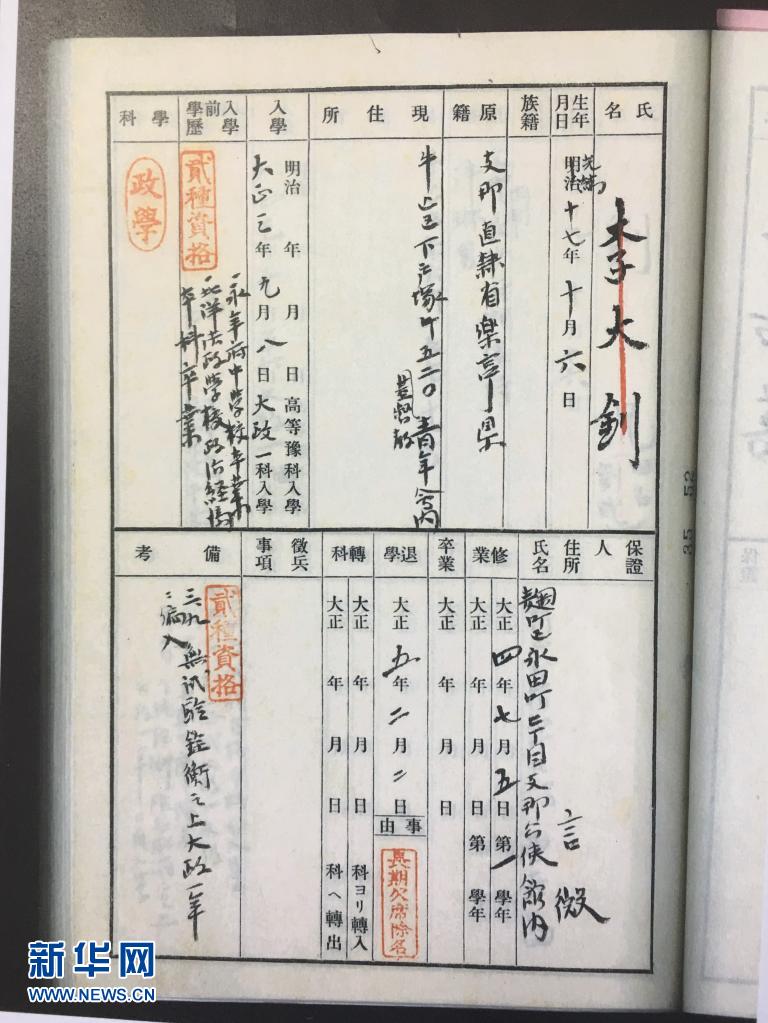 氏名
李大釗
生年月日
光緒
明治十七年十月六日
族籍
原籍
支那直隷省樂亭県
現住所
牛込区下戸塚町五二〇青年会内
基督教
入學
明治 年 月 日 高等豫科入學
大正三年九月八日大政一科入學
入學前學歷
貳種資格
永年府中学校卒業
北洋法政学校政治経済
本科卒業
學科
政學
保證人
住所
氏名
麹町区永田町二丁目支那公使館内
言微
修業
大正四年七月五日第一學年
大正 年 月 日第 學年
卒業
大正 年 月 日
退學
大正五年二月二日
事由
長期欠席除名
轉科
大正 年 月 日 科ヨリ轉入
大正 年 月 日 科ヘ轉出
徵兵事項
備考
貳種資格
三、九、無試驗銓衡之上大政一年
編入
35 52
保證
新华网
WWW.NEWS.CN